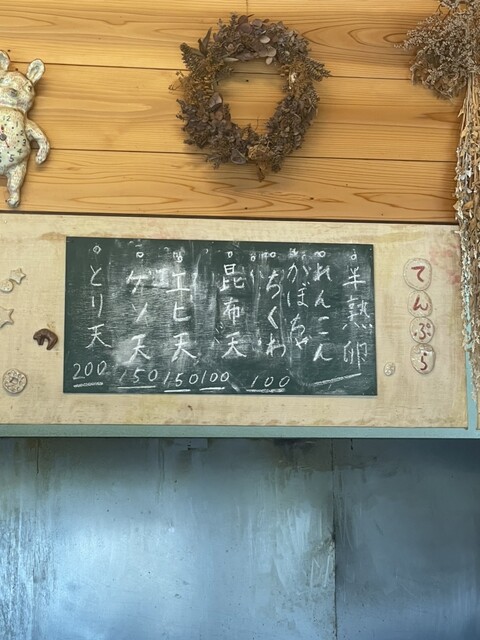 てんぷら
半熟卵
れんこん
かぼちゃ
ちくわ
100
昆布天
100
エビ天
150
ゲソ天
150
とり天
200